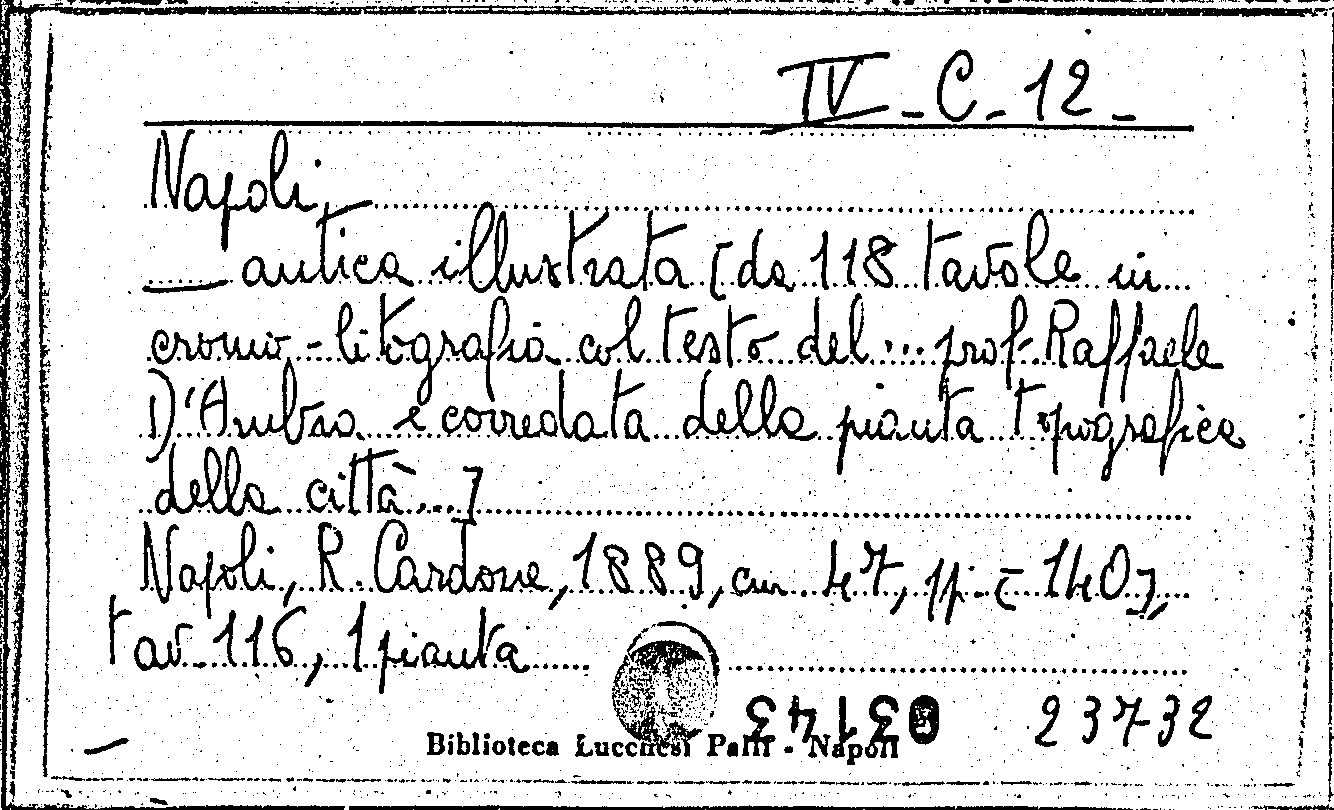 IV - C - 12 -
Napoli,
— antica illustrata [da 118 tavole in
cromo-litografia col testo del... prof. Raffaele
D'Ambra e corredata della pianta topografica
della città...]
Napoli, R. Cardone, 1889, cm. 47, pp. [140],
tav. 116, 1 pianta
03143 23732
Biblioteca Lucchesi Palli - Napoli